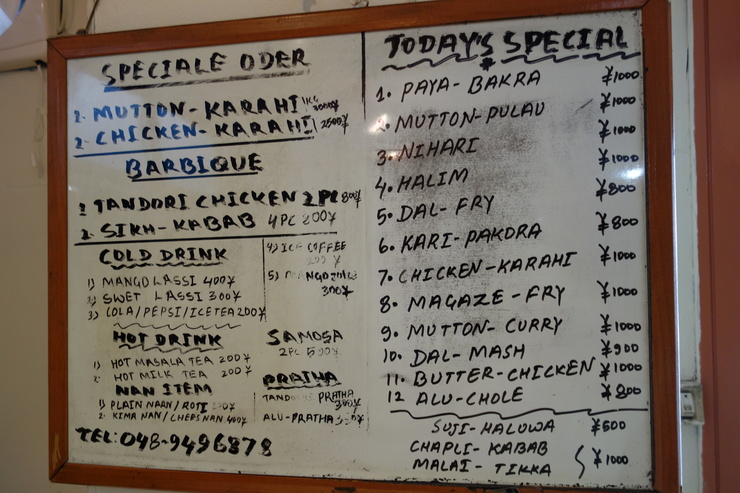 SPECIALE ODER
1. MUTTON-KARAHI 1KG 3000¥
2 CHICKEN-KARAHI 2500¥
BARBIQUE
1 TANDORI CHICKEN 2PC 800¥
2. SIKH-KABAB 4PC 800¥
COLD DRINK
1) MANGO LASSI 400¥
2) SWET LASSI 300¥
3) COLA/PEPSI/ICETEA 200¥
4) ICE COFFEE
200 ¥
5) MANGO JUICE
300¥
HOT DRINK
1) HOT MASALA TEA 200¥
2. HOT MILK TEA 200¥
NAN ITEM
1) PLAIN NARN/ROTI
2. KIMA NAN/CHEES NAN 400¥
SAMOSA
2PC 500¥
PRATHA
PRATHA
300¥
ALU-PRATHA
TEL:048-9496878
TODAY'S SPECIAL
1. PAYA-BAKRA ¥1000
2. MUTTON-PULAU ¥1000
3. NIHARI ¥1000
4. HALIM ¥1000
5. DAL-FRY ¥800
6. KARI-PAKORA ¥800
7. CHICKEN-KARAHI ¥1000
8. MAGAZE-FRY ¥1000
9. MUTTON-CURRY ¥1000
10. DAL-MASH ¥900
11. BUTTER-CHICKEN ¥1000
12 ALU-CHOLE ¥800
SUJI-HALUWA ¥500
CHAPLI-KABAB
MALAI-TIKKA ¥1000